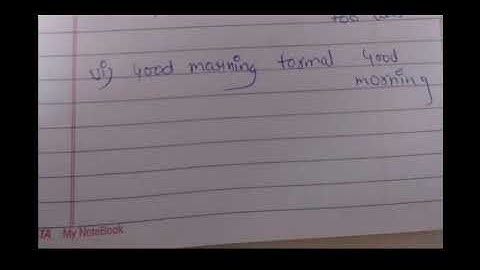 vi) Good marning formal Good
morning
My NoteBook